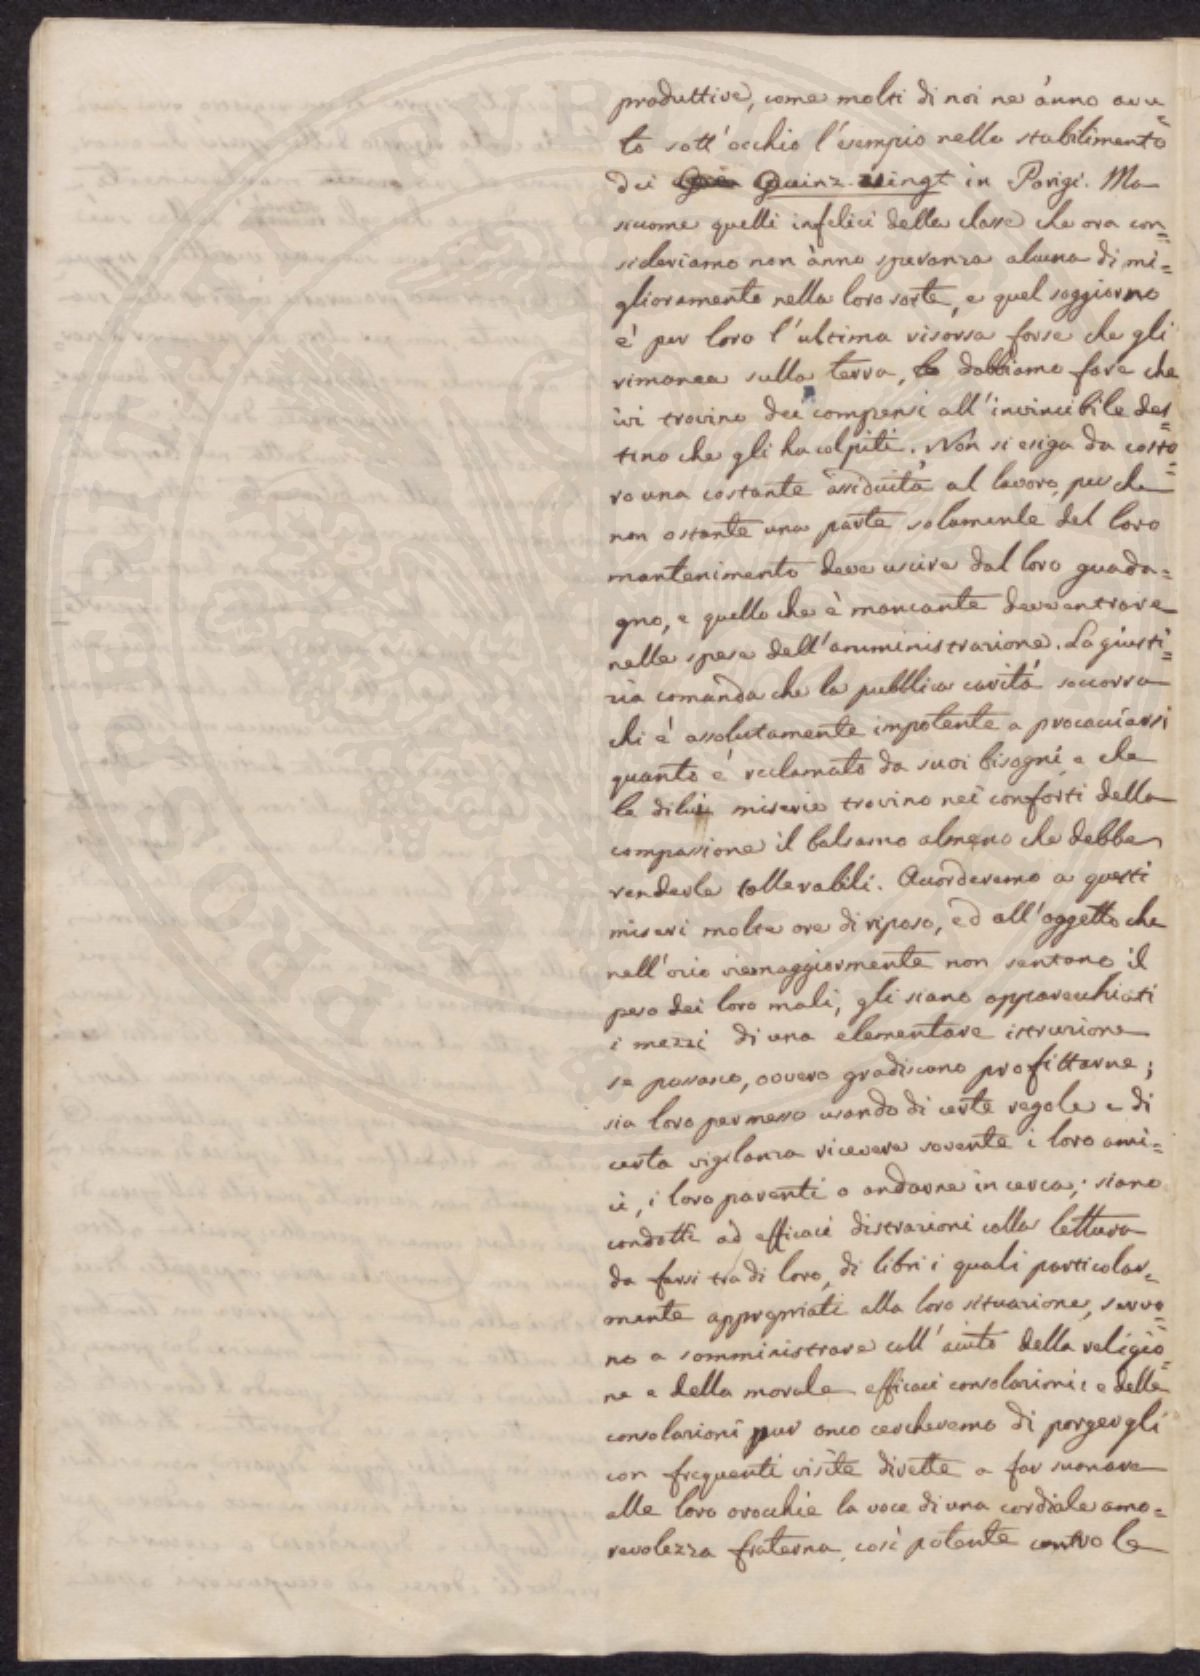 produttive, come molti di noi ne ànno avu=
to sott'occhio l'esempio nello stabilimento
dei Quinz-vingt in Parigi. Ma
siccome quelli infelici della classe che ora con=
sideriamo non ànno speranza alcuna di mi=
glioramento nella loro sorte, e quel soggiorno
è per loro l'ultima risorsa forse che gli
rimanea sulla terra, dobbiamo fare che
ivi trovino dei compensi all'invincibile des=
tino che gli ha colpiti. Non si esiga da costo=
ro una costante assiduità al lavoro, perché
non ostante una parte solamente del loro
mantenimento deve uscire dal loro guada=
gno, e quello che è mancante deve entrare
nelle spese dell'amministrazione. La giusti=
zia comanda che la pubblica carità soccorra
chi è assolutamente impotente a procacciarsi
quanto è reclamato da suoi bisogni e che
le di lui miserie trovino nei conforti della
compassione il balsamo almeno che debbe
renderle tollerabili. Accorderemo a questi
miseri molte ore di riposo, ed all'oggetto che
nell'ozio viemaggiormente non sentano il
peso dei loro mali, gli siano apparecchiati
i mezzi di una elementare istruzione
se possono, ovvero gradiscono profittarne;
sia loro permesso usando di certe regole e di
certa vigilanza ricevere sovente i loro ami=
ci, i loro parenti o andarne in cerca; siano
condotti ad efficaci distrazioni colla lettura
da farsi tra di loro, di libri i quali particolar=
mente appropriati alla loro situazione, servo=
no a somministrare coll'aiuto della religio=
ne e della morale efficaci consolazioni: e delle
consolazioni pur anco cercheremo di porgergli
con frequenti visite dirette a far suonare
alle loro orecchie la voce di una cordiale amo=
revolezza fraterna, così potente contro le